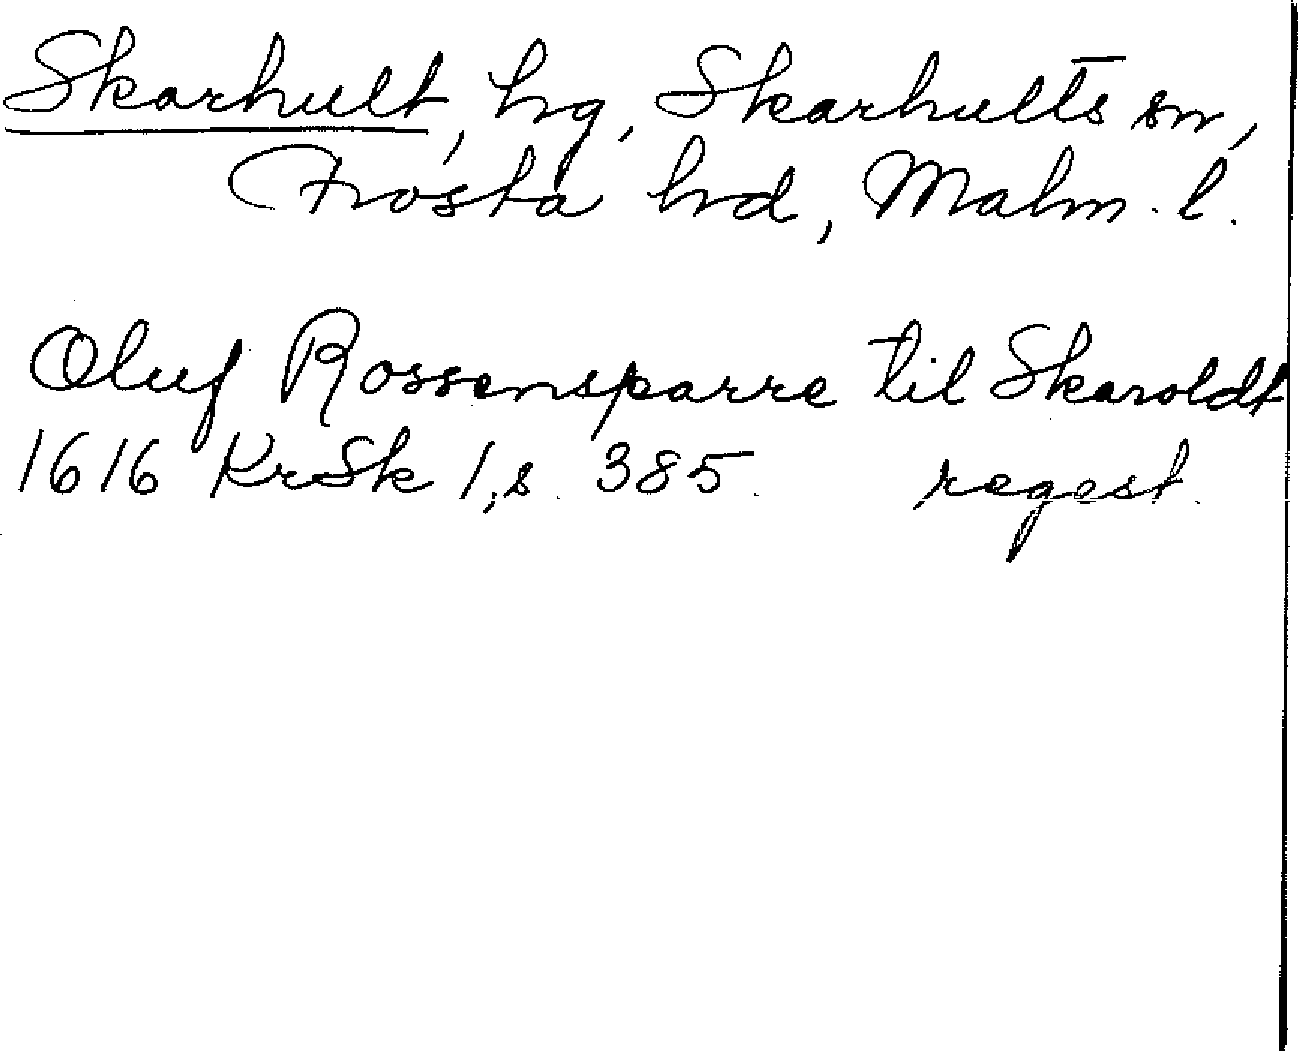 Skarhult, hg, Skarhults sn,
Frosta hrd, Malm. l.
Oluf Rossensparre til Skaroldt
1616 KrSk 1, s. 385. regest.